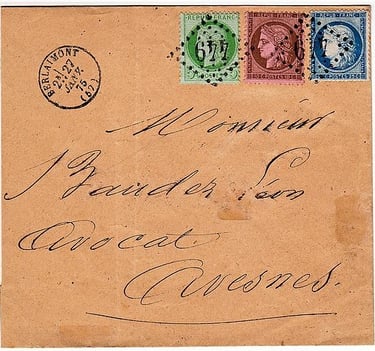 BERLAIMONT
2E 27
JANV.
75
(57)
REPUB. FRANC.
REPUB. FRANC.
REPUB. FRANC.
449
POSTES
Monsieur
Bauder Léon
Avocat
Avesnes.